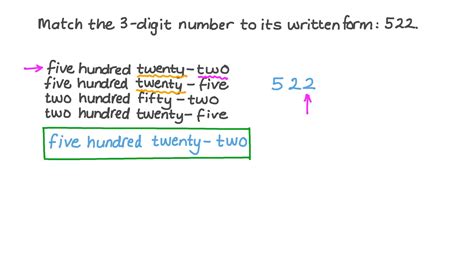 Match the 3-digit number to its written form: 522.
five hundred twenty-two
five hundred twenty-five
two hundred fifty-two
two hundred twenty-five
522
five hundred twenty-two